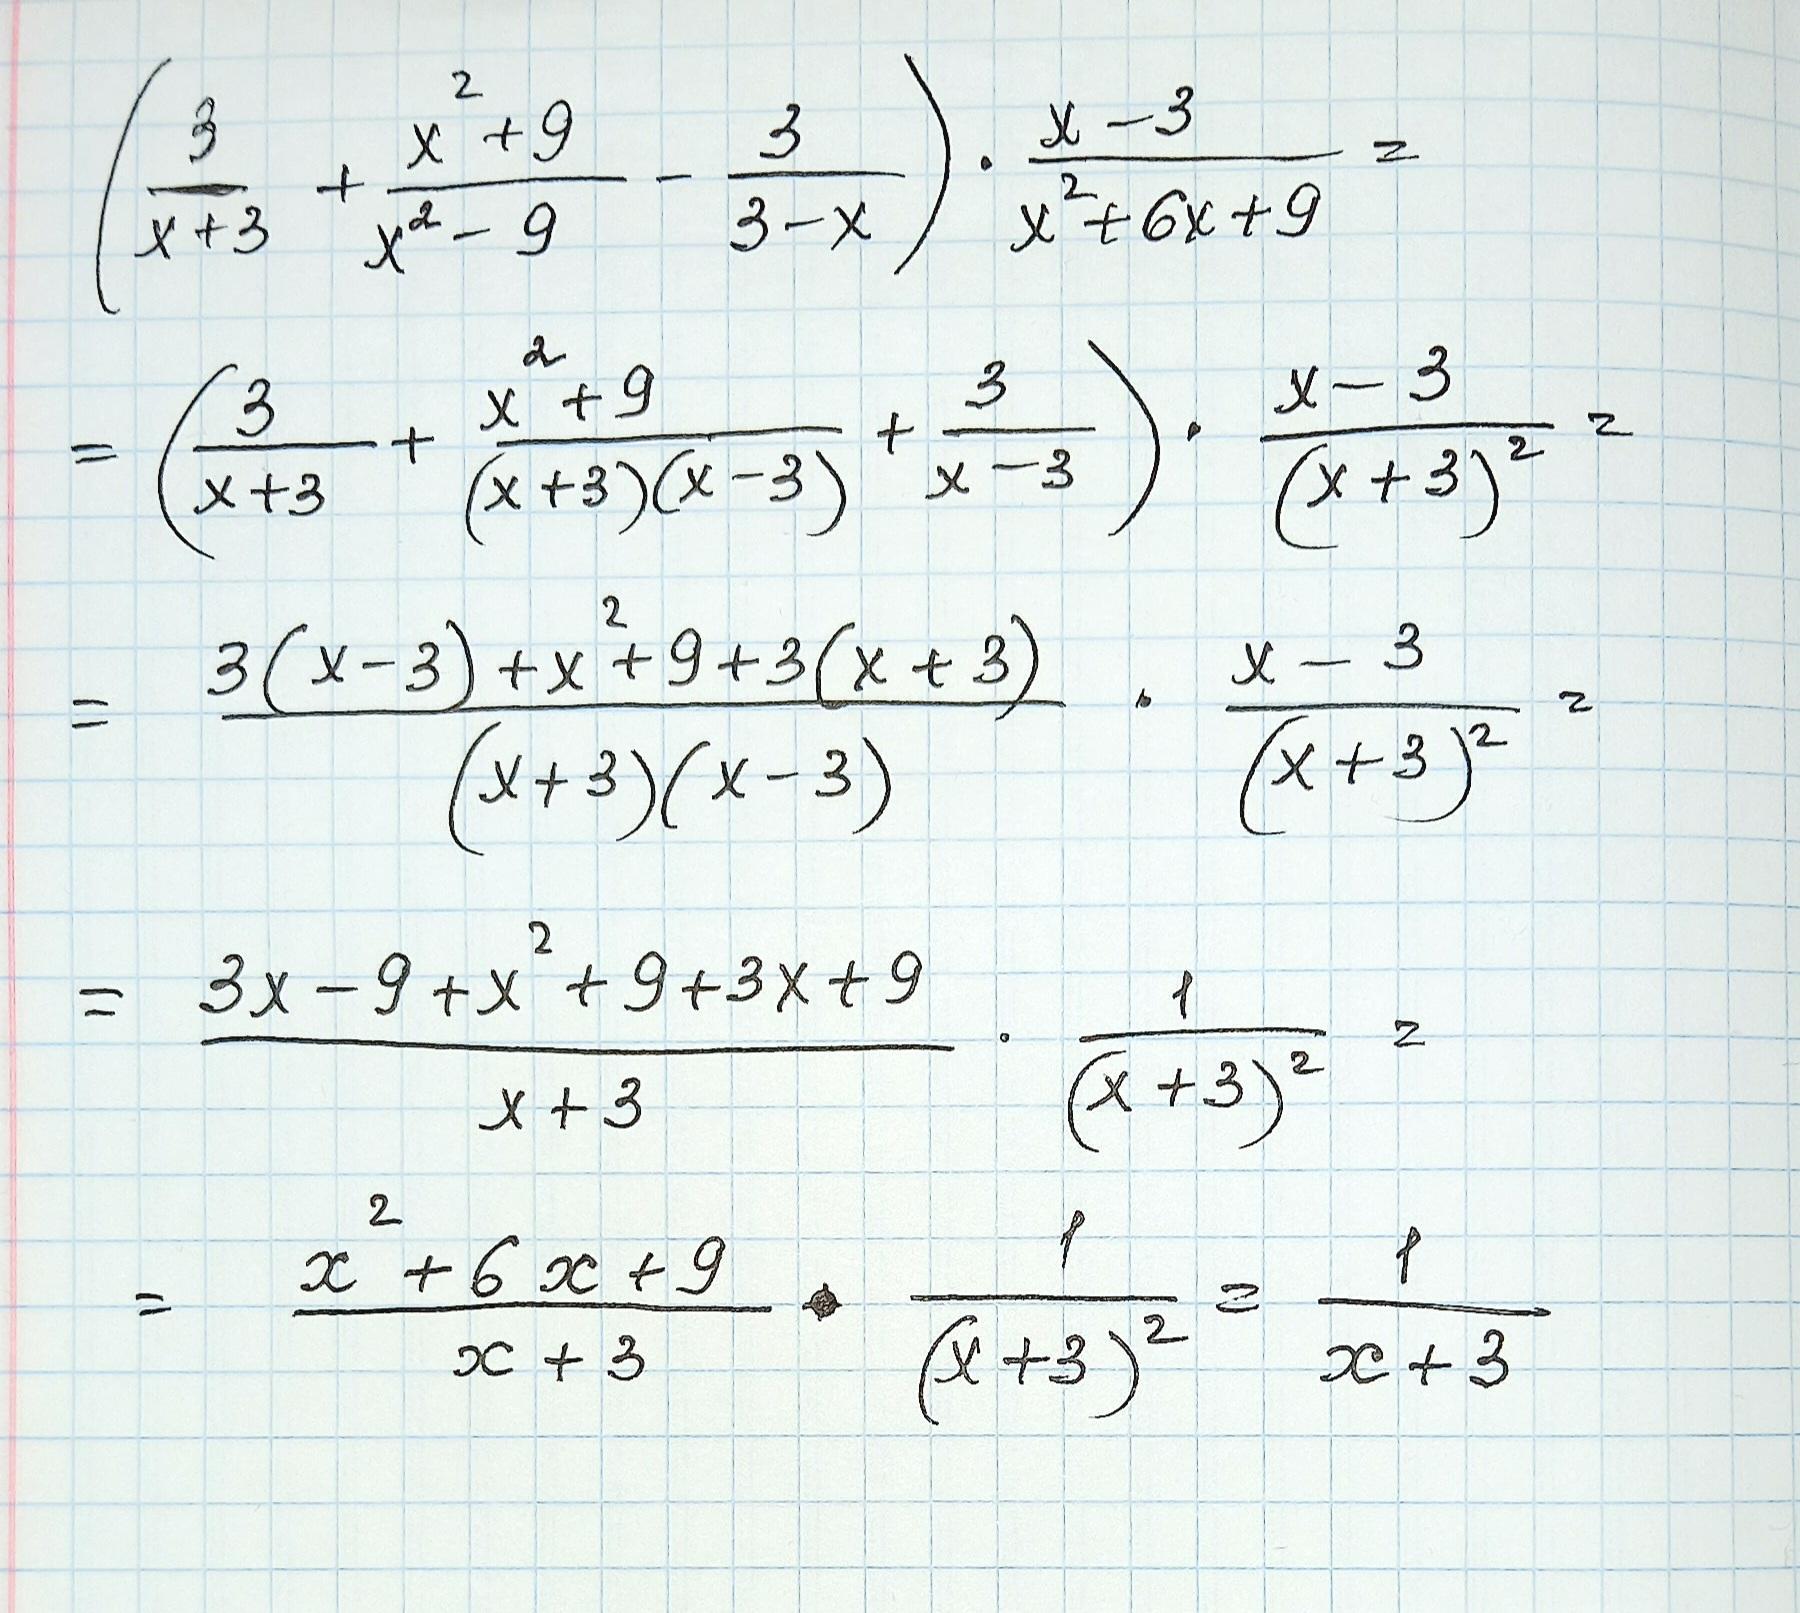 (3/(x+3) + (x²+9)/(x²-9) - 3/(3-x)) · (x-3)/(x²+6x+9) =
= (3/(x+3) + (x²+9)/((x+3)(x-3)) + 3/(x-3)) · (x-3)/(x+3)² =
= (3(x-3)+x²+9+3(x+3))/((x+3)(x-3)) · (x-3)/(x+3)² =
= (3x-9+x²+9+3x+9)/(x+3) · 1/(x+3)² =
= (x²+6x+9)/(x+3) · 1/(x+3)² = 1/(x+3)